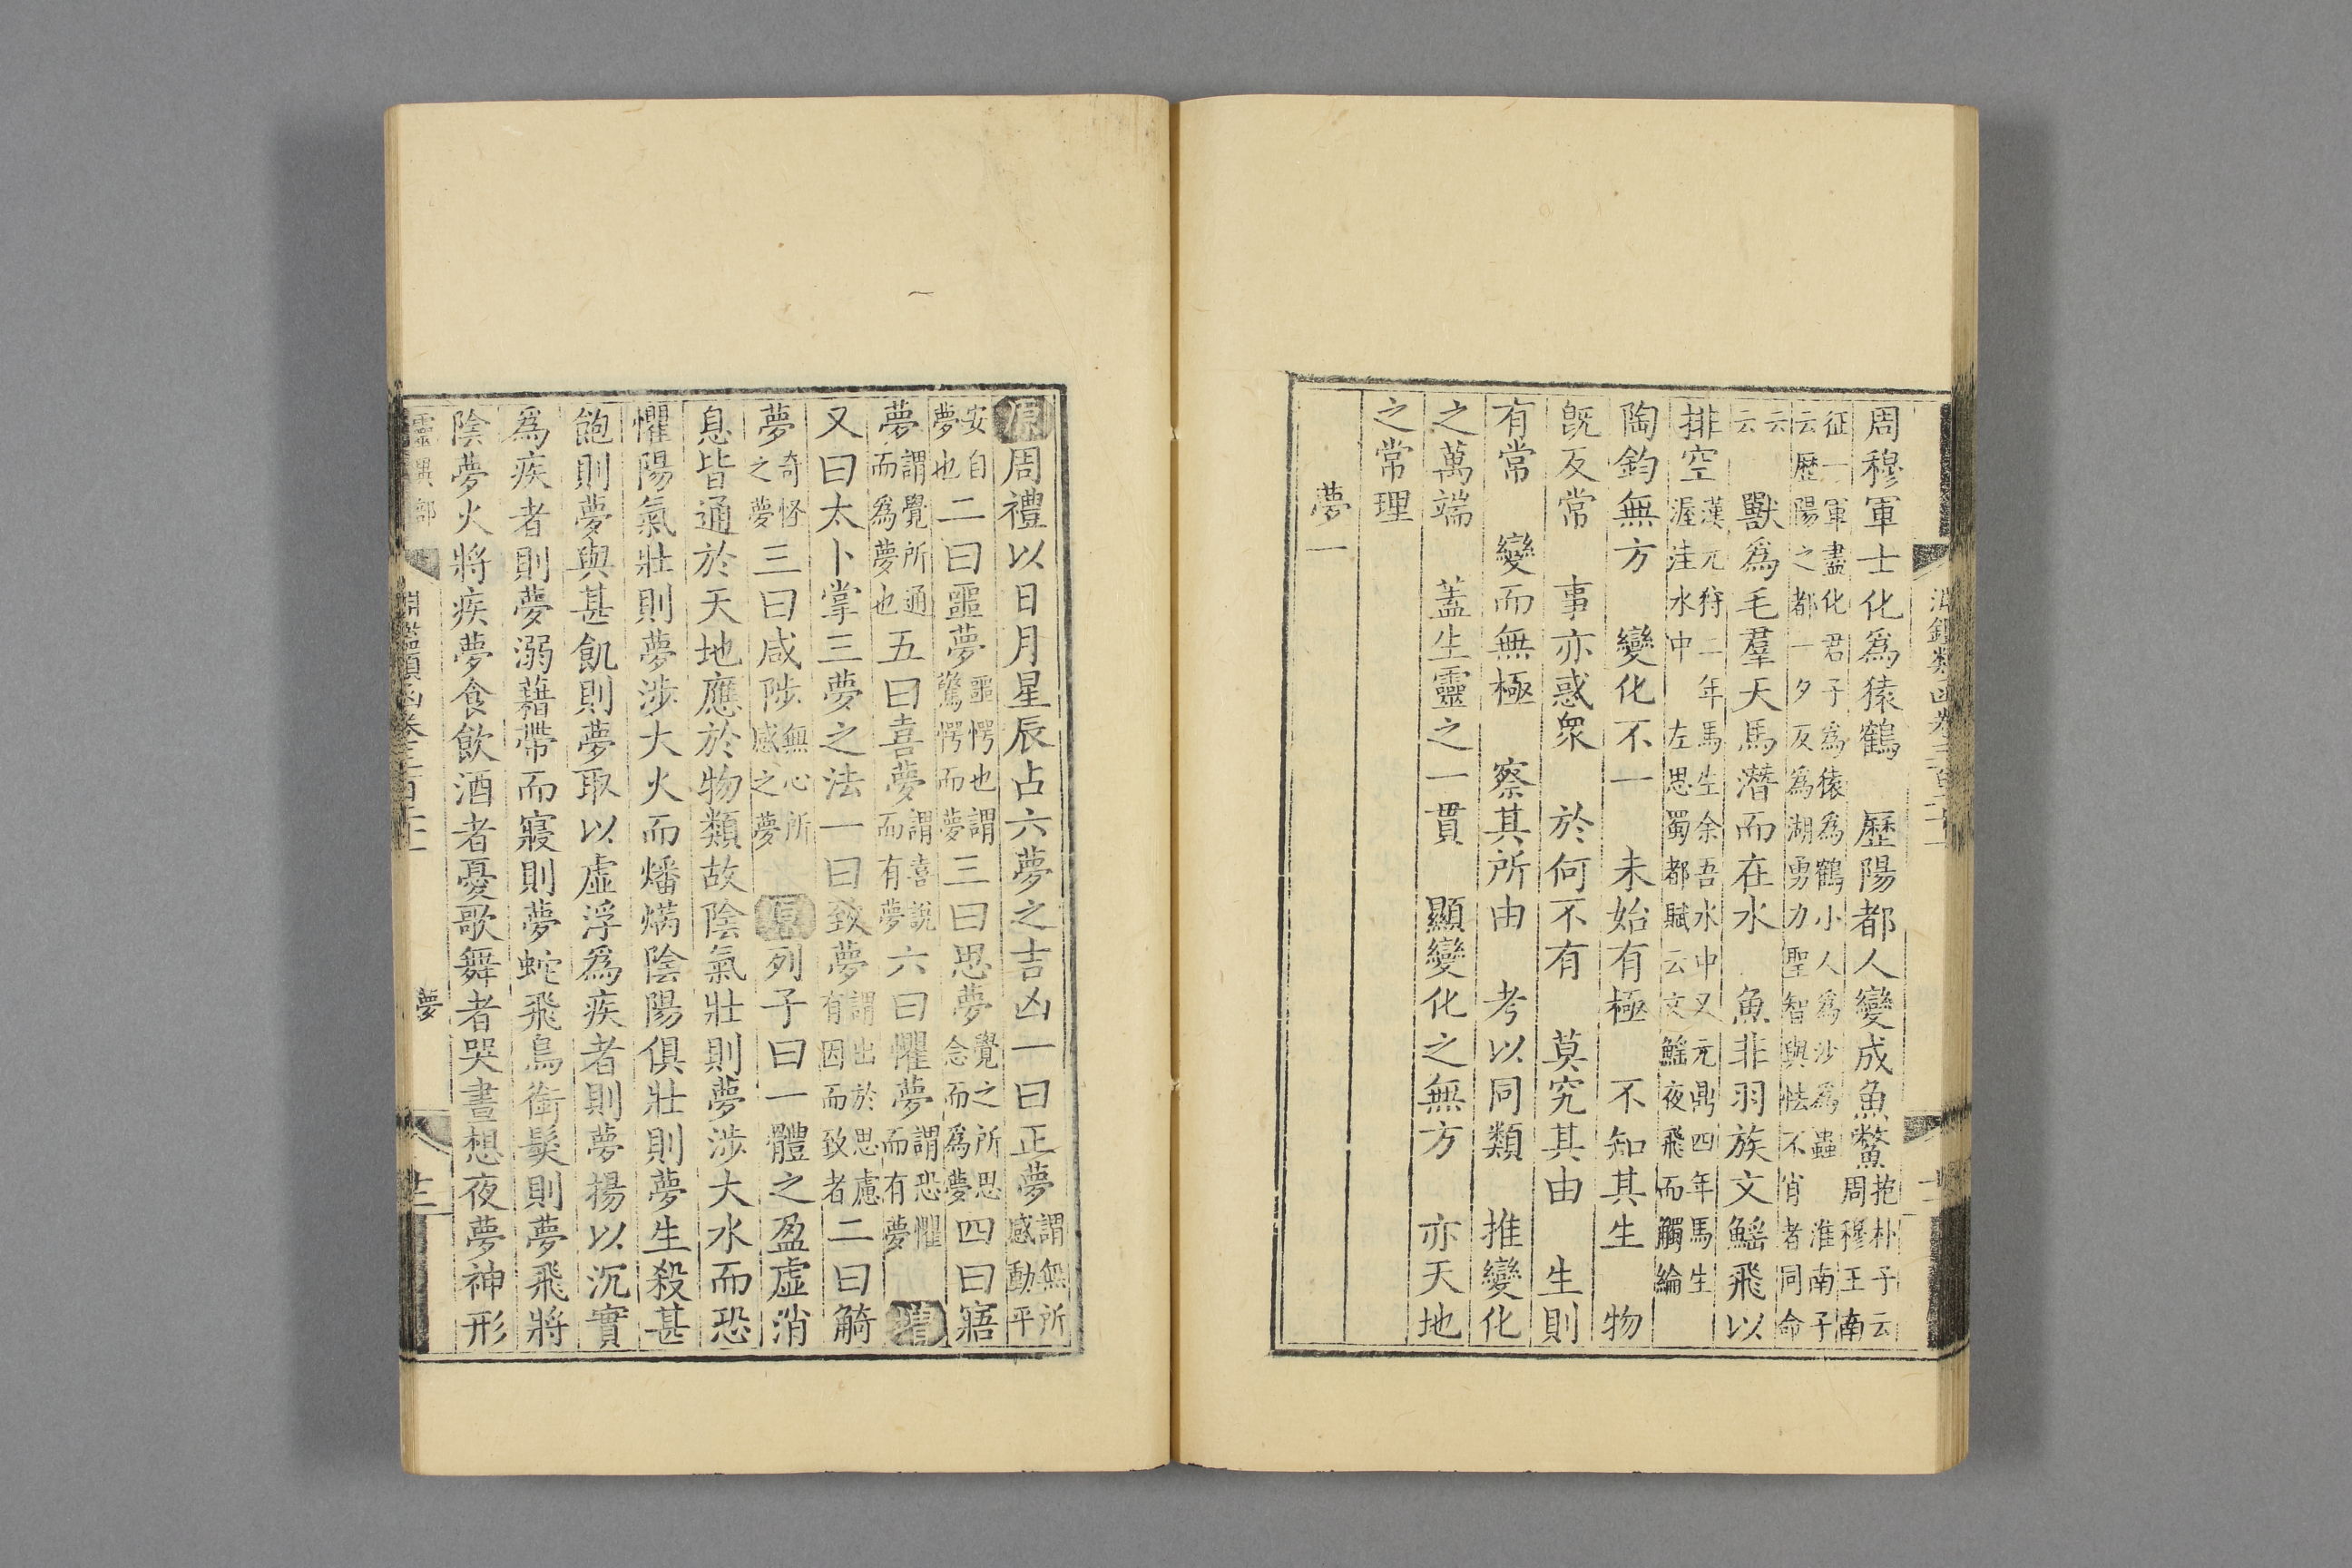 周穆軍士化為猿鶴　歷陽都人變成魚鱉抱朴子云周穆王南
征一軍盡化君子為猿為鶴小人為沙為蟲　淮南子云歷陽之都一夕反為湖勇力聖智與怯不肖者同命
云云　獸為毛羣天馬潛而在水　魚非羽族文鰩飛以
排空漢元狩二年馬生余吾水中又元鼎四年馬生渥洼水中　左思蜀都賦云文鰩夜飛而觸綸
陶鈞無方　變化不一　未始有極　不知其生　物
旣反常　事亦惑衆　於何不有　莫究其由　生則
有常　變而無極　察其所由　考以同類　推變化
之萬端　蓋生靈之一貫　顯變化之無方　亦天地
之常理
夢一
原周禮以日月星辰占六夢之吉凶一曰正夢謂無所感動平
安自夢也二曰噩夢噩愕也謂驚愕而夢三曰思夢覺之所思念而為夢四曰寤
夢謂覺所通而為夢也五曰喜夢謂喜說而有夢六曰懼夢謂恐懼而有夢增
又曰太卜掌三夢之法一曰致夢謂出於思慮有因而致者二曰觭
夢奇怪之夢三曰咸陟無心所感之夢原列子曰一體之盈虛消
息皆通於天地應於物類故陰氣壯則夢涉大水而恐
懼陽氣壯則夢涉大火而燔焫陰陽俱壯則夢生殺甚
飽則夢與甚飢則夢取以虛浮為疾者則夢揚以沉實
為疾者則夢溺藉帶而寢則夢蛇飛鳥銜髮則夢飛將
陰夢火將疾夢食飲酒者憂歌舞者哭晝想夜夢神形
靈異部　淵鑑類函卷三百二十一　夢